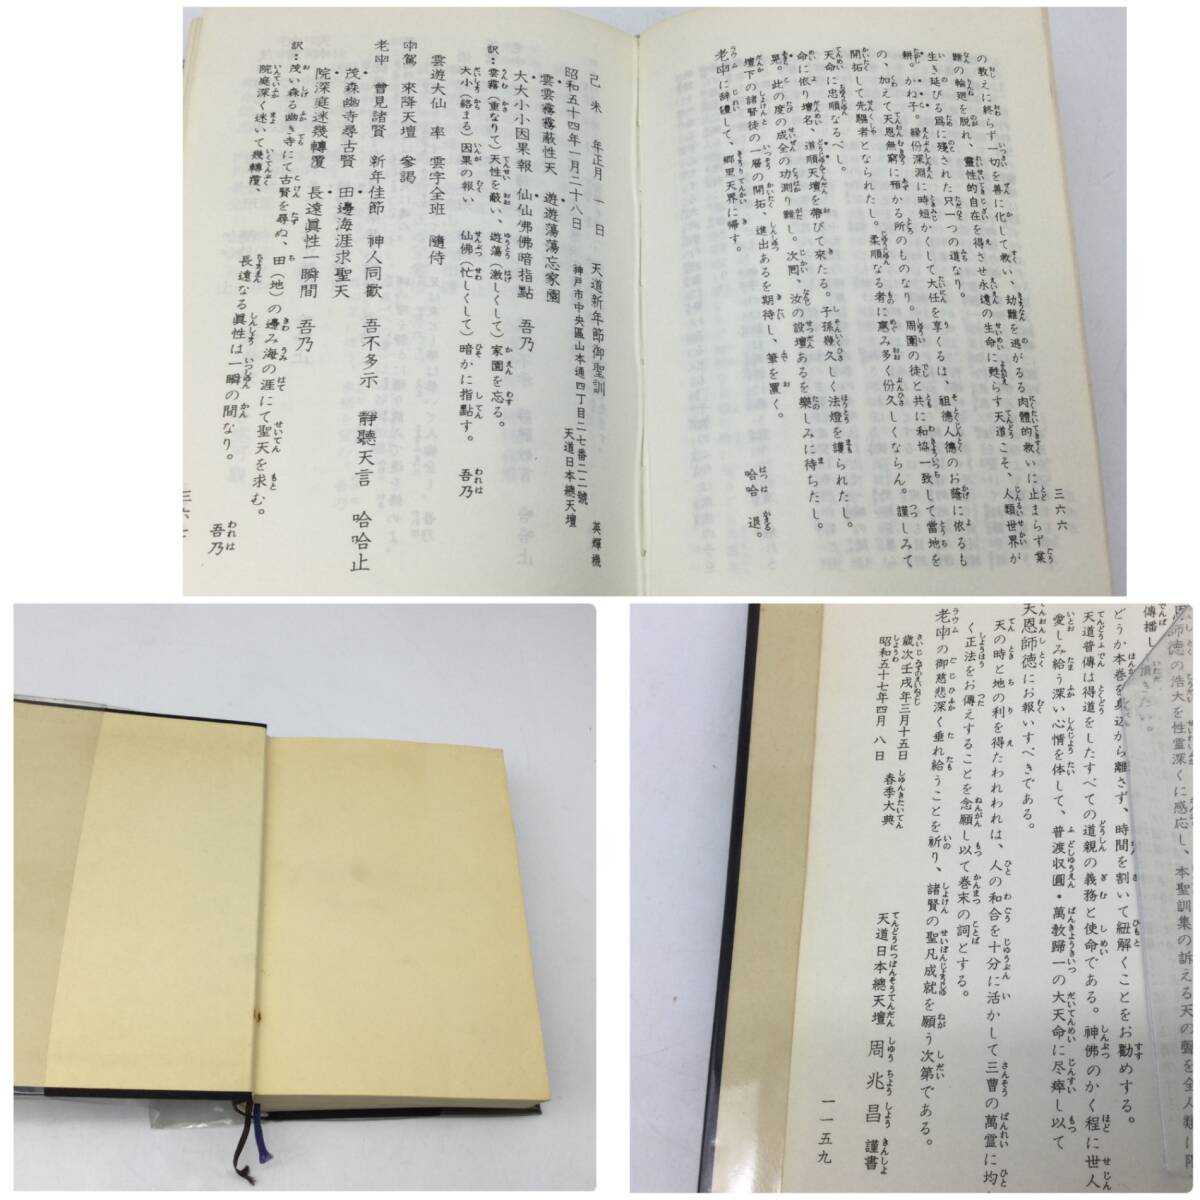 三六六
の教えに終らず一切を善に化して救い、幼難を逃がるる肉體的救いに止まらず業
難の輪廻を脱れ、靈性的自在を得させ永遠の生命に甦らす天道こそ、人類世界が
生き延びる為に殘された只一つの道なり。
耕。かね子。縁份深淵に時短かくして大任を享くるは、祖德人德のお蔭に依るも
の、加えて天恩無窮に預かる所のものなり。周圍の徒と共に和協一致して當地を
開拓して先驅者となられたし。柔順なる者に惠み多く份久しくならん。謹しみて
天命に忠順なるべし。
命に依り壇名、道順天壇を帶びて来たる。子孫幾久しく法燈を護られたし。
晃。此の度の成全の功測り難し。次囘、汝の設壇あるを樂しみに待ちたし。
壇下の諸賢徒の一層の開拓、進出あるを期待し、筆を置く。
老𠂤に辭禮して、鄉里天界に帰す。
哈哈 退。
己未 年正月 一日 天道新年節御聖訓 英輝機
昭和五十四年一月二十八日 神戸市中央區山本通四丁目二七番二二號
天道日本總天壇
雲雲霧霧蔽性天 遊遊蕩蕩忘家園
大大小小因果報 仙仙佛佛暗指點 吾乃
訳：雲霧(重なりて)天性を蔽い、遊蕩(激しくして)家園を忘る。
大小(絡まる)因果の報い 仙佛(忙しくして)暗かに指點す。 吾乃
雲遊大仙 率 雲字全班 隨侍
駕 來降天壇 參謁
老 曾見諸賢 新年佳節 神人同歡 吾不多示 靜聽天言 哈哈止
茂森幽寺尋古賢 田邊海涯求聖天
院深庭迷幾轉覆 長遠眞性一瞬間 吾乃
訳：茂い森る幽き寺にて古賢を尋ぬ、田(地)の邊み海の涯にて聖天を求む。
院庭深く迷いて幾轉覆、 長遠なる眞性は一瞬の間なり。 吾乃
恩師德の浩大を性霊深くに感応し、本聖訓集の訴える天の聲を全人類に
傳播し 頂きたい。
どうか本巻を身辺から離さず、時間を割いて紐解くことをお勸めする。
天道普傳は得道をしたすべての道親の義務と使命である。神佛のかく程に世人
愛しみ給う深い心情を体して、普渡収圓・萬教歸一の大天命に尽瘁し以て
天恩師德にお報いすべきである。
天の時と地の利を得たわれわれは、人の和合を十分に活かして三曹の萬霊に均
く正法をお傳えすることを念願し以て巻末の詞とする。
老の御慈悲深く垂れ給うことを祈り、諸賢の聖凡成就を願う次第である。
歳次壬戌年三月十五日
昭和五十七年四月八日 春季大典
天道日本總天壇 周兆昌 謹書
一一五九